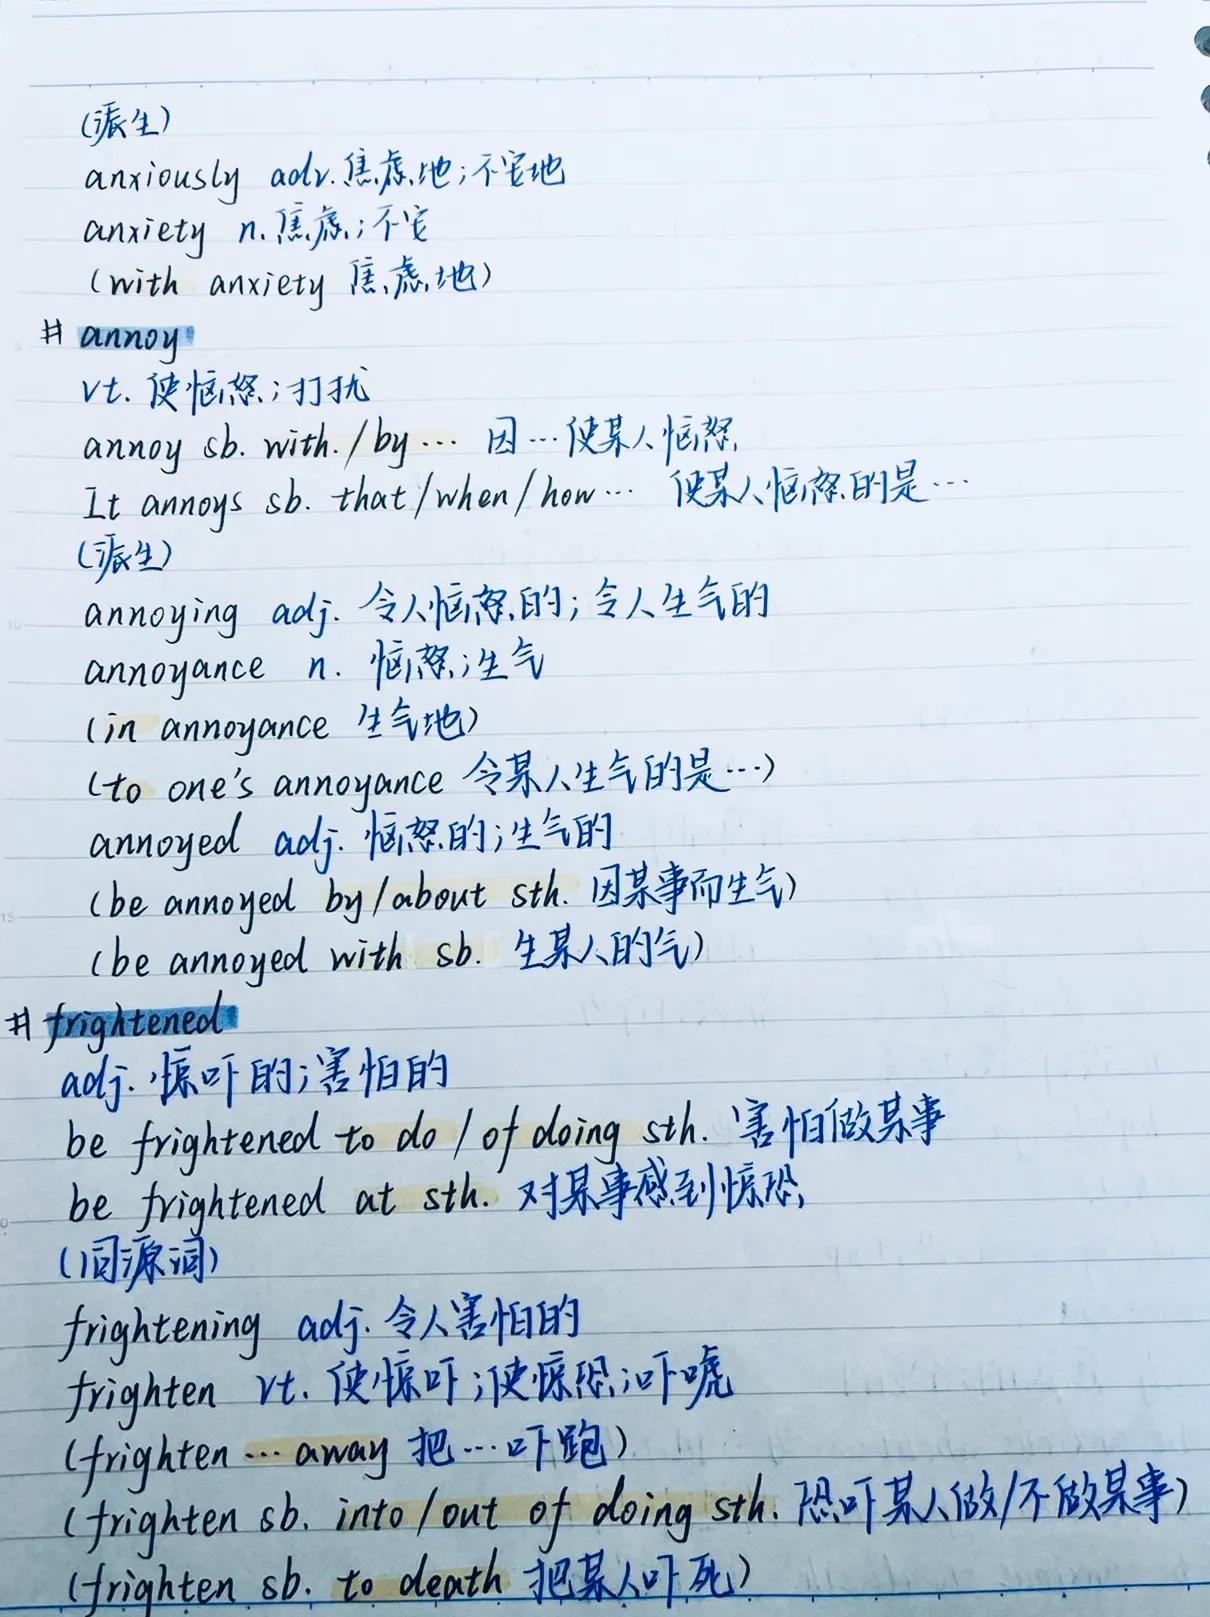 (派生)
anxiously adv.焦虑地;不安地
anxiety n.焦虑;不安
(with anxiety 焦虑地)
# annoy
vt. 使恼怒;打扰
annoy sb. with./by… 因…使某人恼怒
It annoys sb. that/when/how… 使某人恼怒的是…
(派生)
annoying adj. 令人恼怒的;令人生气的
annoyance n. 恼怒;生气
(in annoyance 生气地)
(to one's annoyance 令某人生气的是…)
annoyed adj. 恼怒的;生气的
(be annoyed by/about sth. 因某事而生气)
(be annoyed with sb. 生某人的气)
# frightened
adj. 惊吓的;害怕的
be frightened to do/of doing sth. 害怕做某事
be frightened at sth. 对某事感到惊恐
(同源词)
frightening adj. 令人害怕的
frighten vt. 使惊吓;使惊恐;吓唬
(frighten … away 把…吓跑)
(frighten sb. into/out of doing sth. 恐吓某人做/不做某事)
(frighten sb. to death 把某人吓死)